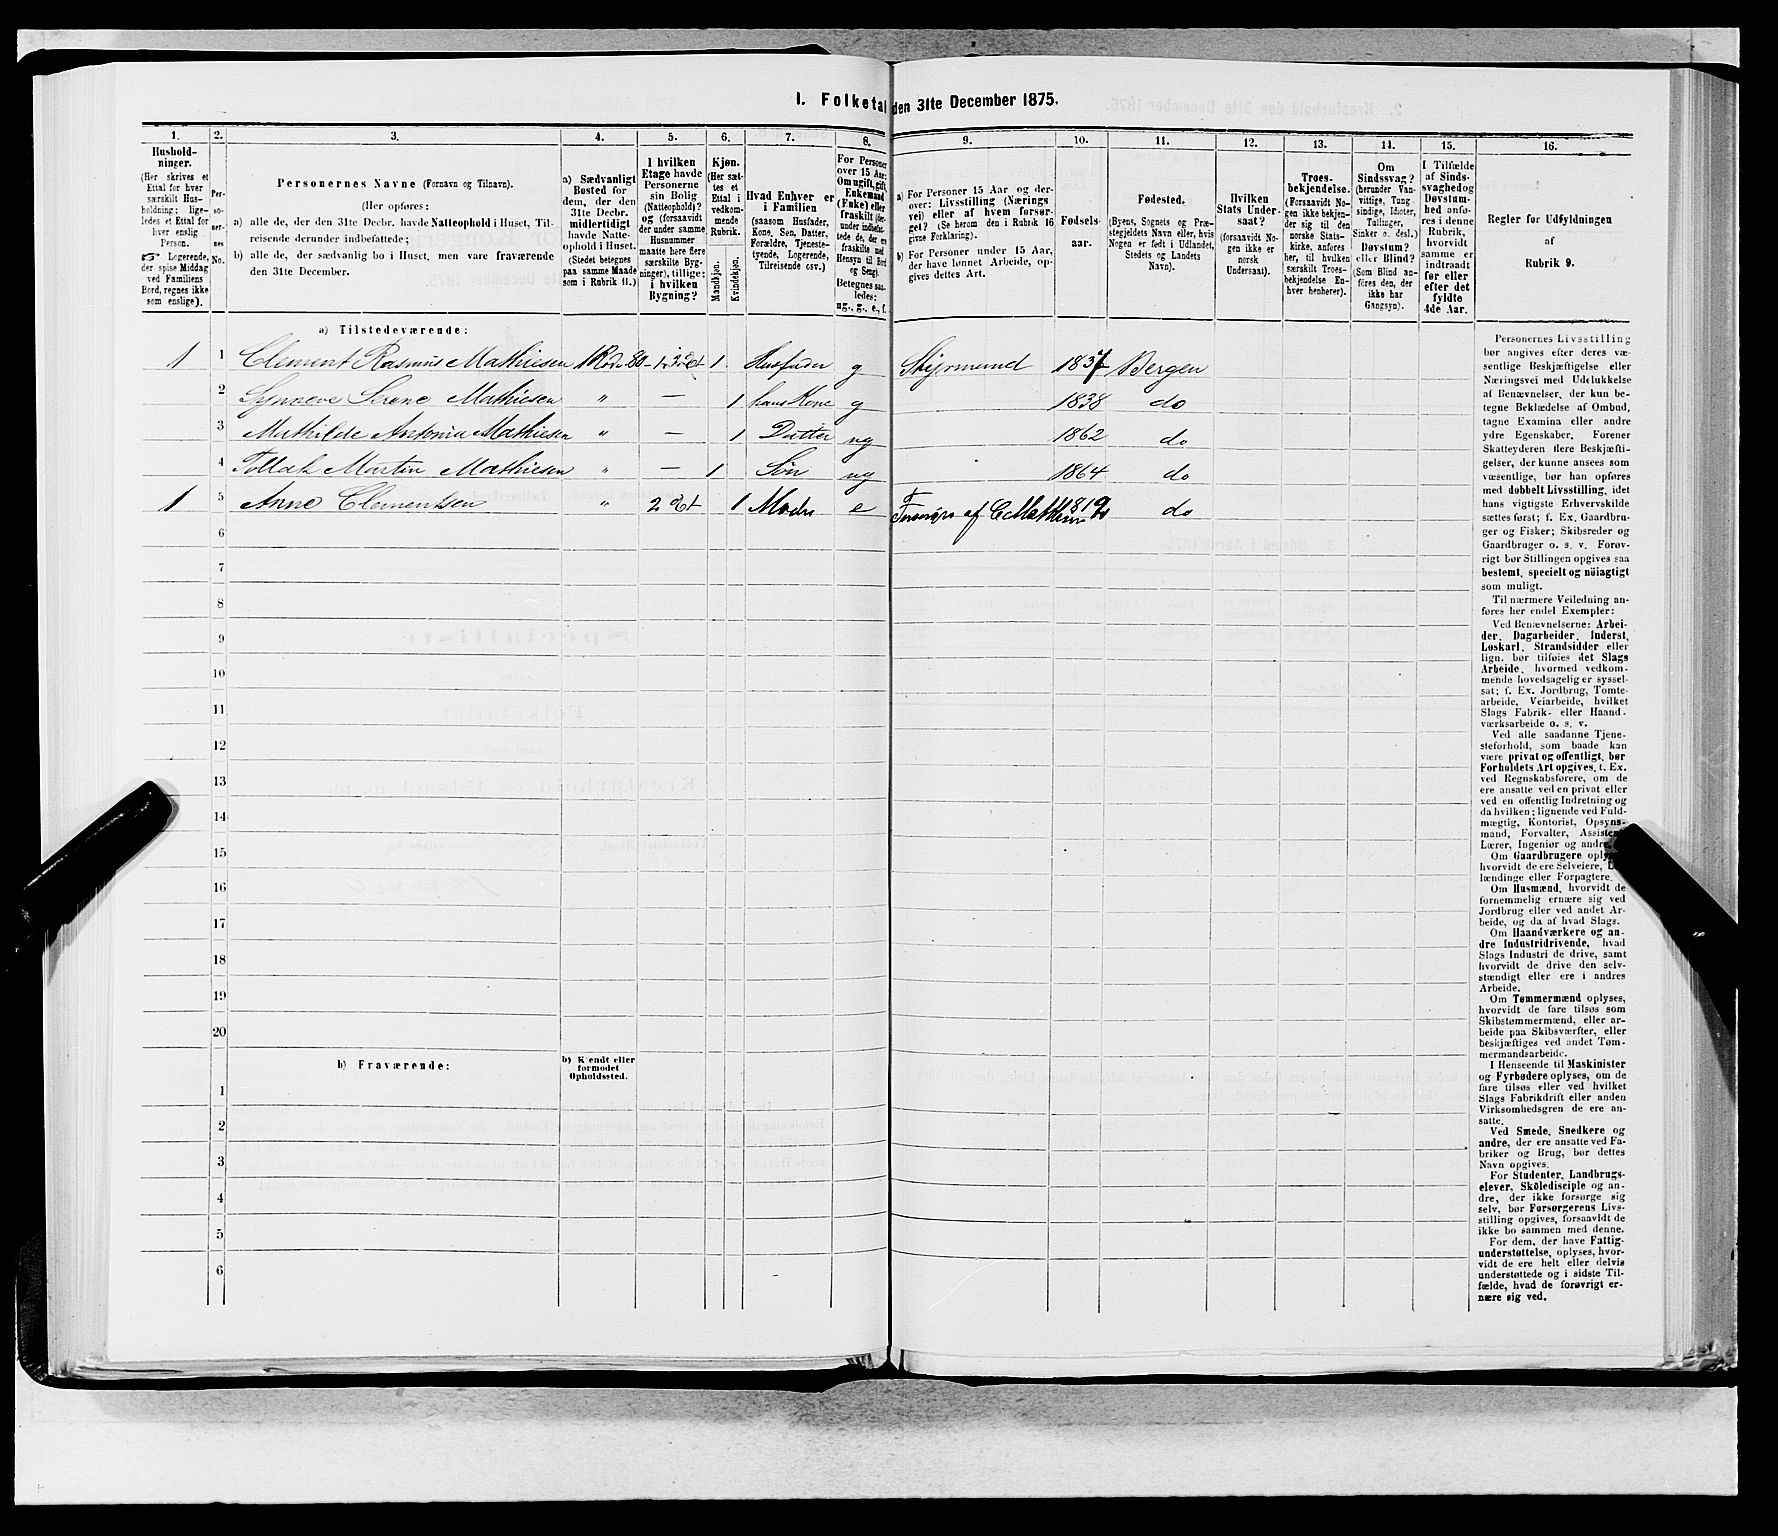 1. Folketal den 31te December 1875.
1. 2. 3. 4. 5. 6. 7. 8. 9. 10. 11. 12. 13. 14. 15. 16.
Hushold-
ninger.
(Her skrives et
Ettal for hver
særskilt Hus-
holdning; lige-
ledes et Ettal for
hver enslig
Person.
☞ Logerende,
der spise Middag
ved Familiens
Bord, regnes ikke
som enslige).
Per-
so-
ner-
nes
No.
Personernes Navne (Fornavn og Tilnavn).
(Her opføres:
a) alle de, der den 31te Decbr. havde Natteophold i Huset, Til-
reisende derunder indbefattede;
b) alle de, der sædvanlig bo i Huset, men vare fraværende
den 31te December.
a) Sædvanligt
Bosted for
dem, der den
31te Decbr.
midlertidigt
havde Natte-
ophold i Huset.
(Stedet betegnes
paa samme Maade
som i Rubrik 11.)
I hvilken
Etage havde
Personerne
sin Bolig
(Natteophold)?
og (forsaavidt
der under samme
Husnummer
maatte høre flere
særskilte Byg-
ninger), tillige:
i hvilken
Bygning?
Kjøn.
(Her sæt-
tes et
Ettal i
vedkom-
mende
Rubrik.
Mandkjøn.
Kvindekjøn.
Hvad Enhver er
i Familien
(saasom Husfader,
Kone, Søn, Datter,
Forældre, Tjeneste-
tyende, Logerende,
Tilreisende osv.)
For Personer
over 15 Aar:
Om ugift, gift,
Enkemand
(Enke) eller
fraskilt (der-
under indbefat-
tede de, der er
fraskilte med
Hensyn til Bord
og Seng).
Betegnes saa-
ledes:
ug., g., e., f.
a) For Personer 15 Aar og der-
over: Livsstilling (Nærings
vei) eller af hvem forsør-
get? (Se herom den i Rubrik 16
givne Forklaring).
b) For Personer under 15 Aar,
der have lønnet Arbeide, op-
gives dettes Art.
Fødsels-
aar.
Fødested.
(Byens, Sognets og Præ-
stegjeldets Navn eller, hvis
Nogen er født i Udlandet,
Stedets og Landets
Navn).
Hvilken
Stats Under-
saat?
(forsaavidt No-
gen ikke er
norsk
Undersaat).
Troes-
bekjendelse.
(Forsaavidt No-
gen ikke bekjen-
der sig til den
norske Stats-
kirke, anføres
her, til hvilken
særskilt Troes-
bekjendelse En-
hver henhører).
Om
Sindssvag?
(herunder Van-
vittige, Tung
sindige, Idioter,
Tullinger,
Sinker o. desl.)
Døvstum?
eller Blind?
(Som Blind an-
føres den, der
ikke har
Gangsyn).
I Tilfælde
af Sinds-
svaghed og
Døvstum-
hed anfø-
res i denne
Rubrik,
hvorvidt
samme er
indtraadt
før eller
efter det
fyldte
4de Aar.
Regler for Udfyldningen
af
Rubrik 9.
a) Tilstedeværende:
1 1 Clement Rasmus Mathiesen 1 Rode 80 1 Husfader g Styrmand 1837 Bergen
2 Synneve Serene Mathiesen " — 1 hans Kone g 1838 do
3 Mathilde Antonia Mathiesen " — 1 Datter ug 1862 do
4 Tollak Martin Mathiesen " — 1 Søn ug 1864 do
1 5 Anne Clementsen " 2 Et 1 Moder e Forsørges af C Mathiesen do
6
7
8
9
10
11
12
13
14
15
16
17
18
19
20
b) Fraværende:
b) Kjendt eller
formodet
Opholdssted.
1
2
3
4
5
6
Personernes Livsstilling
bør angives efter deres væ-
sentlige Beskjæftigelse eller
Næringsvei med Udelukkelse
af Benævnelser, der kun be-
tegne Beklædelse af Ombud,
tagne Examina eller andre
ydre Egenskaber. Forener
Skatteyderen flere Beskjæfti-
gelser, der kunne ansees som
væsentlige, bør han opføres
med dobbelt Livsstilling, idet
hans vigtigste Erhvervskilde
sættes først; f. Ex. Gaardbru-
ger og Fisker; Skibsreder og
Gaardbruger o. s. v. Forøv-
rigt bør Stillingen opgives saa
bestemt, specielt og nöiagtigt
som muligt.
Til nærmere Veiledning an-
føres her endel Exempler:
Ved Benævnelserne: Arbei-
der, Dagarbeider, Inderst,
Løskarl, Strandsidder eller
lign. bør tilføies det Slags
Arbeide, hvormed vedkom-
mende hovedsagelig er syssel-
sat; f. Ex. Jordbrug, Tomte-
arbeide, Veiarbeide, hvilket
Slags Fabrik- eller Haand-
værksarbeide o. s. v.
Ved alle saadanne Tjene-
steforhold, som baade kan
være privat og offentligt, bør
Forholdets Art opgives, t. Ex.
ved Regnskabsførere, om de
ere ansatte ved en privat eller
ved en offentlig Indretning og
da hvilken; lignende ved Fuld-
mægtig, Kontorist, Opsyns-
mand, Forvalter,
Lærer, Ingeniør og andre.
Om Gaardbrugere
hvorvidt de ere Selveiere,
lændinge eller Forpagtere.
Om Husmænd, hvorvidt de
fornemmelig ernære sig ved
Jordbrug eller ved andet Ar-
beide, og da af hvad Slags.
Om Haandværkere og an-
dre Industridrivende, hvad
Slags Industri de drive, samt
hvorvidt de drive den selv-
stændigt eller ere i andres
Arbeide.
Om Tømmermænd oplyses,
hvorvidt de fare tilsøs som
Skibstømmermænd, eller ar-
beide paa Skibsværfter, eller
beskjæftiges ved andet Tøm-
mermandsarbeide.
I Henseende til Maskinister
og Fyrbødere oplyses, om de
fare tilsøs eller ved hvilket
Slags Fabrikdrift eller anden
Virksomhedsgren de ere an-
satte.
Ved Smede, Snedkere og
andre, der ere ansatte ved Fa-
briker og Brug, bør dettes
Navn opgives.
For Studenter, Landbrugs-
elever, Skoledisciple og an-
dre, der ikke forsørge sig
selv, bør Forsørgerens Livs-
stilling opgives, forsaavidt de
ikke bo sammen med denne.
For dem, der have Fattig-
understøttelse, oplyses, hvor-
vidt de ere helt eller delvis
understøttede og i sidste Til-
fælde, hvad de forøvrigt er-
nære sig ved.